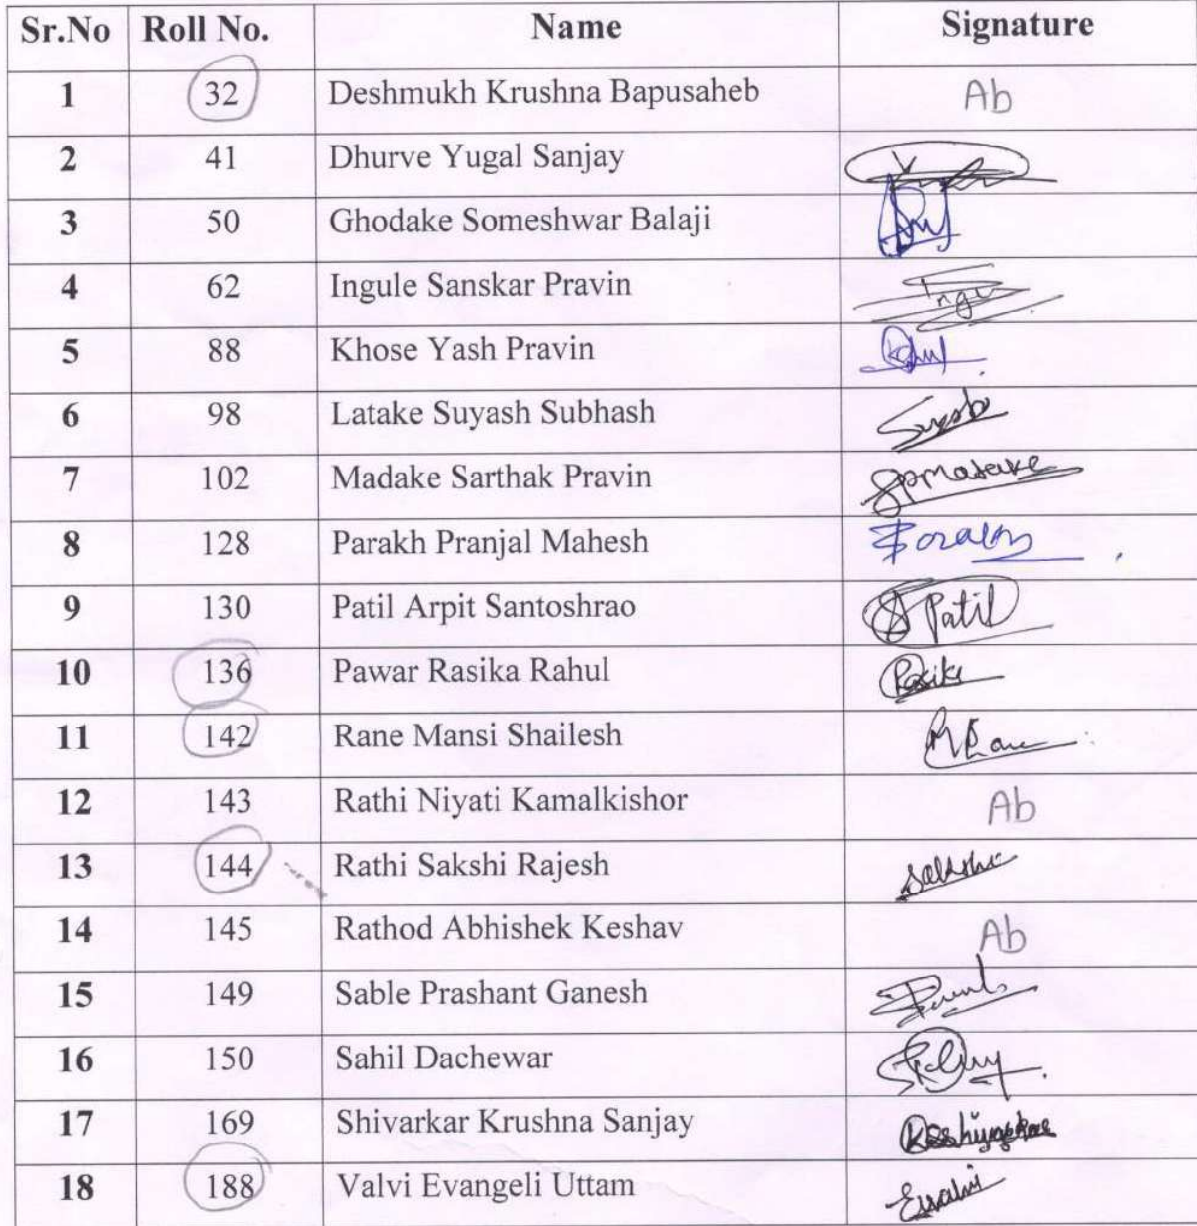 Sr.No Roll No. Name Signature
1 32 Deshmukh Krushna Bapusaheb Ab
2 41 Dhurve Yugal Sanjay
3 50 Ghodake Someshwar Balaji
4 62 Ingule Sanskar Pravin
5 88 Khose Yash Pravin
6 98 Latake Suyash Subhash
7 102 Madake Sarthak Pravin
8 128 Parakh Pranjal Mahesh
9 130 Patil Arpit Santoshrao Patil
10 136 Pawar Rasika Rahul Rasika
11 142 Rane Mansi Shailesh
12 143 Rathi Niyati Kamalkishor Ab
13 144 Rathi Sakshi Rajesh
14 145 Rathod Abhishek Keshav Ab
15 149 Sable Prashant Ganesh
16 150 Sahil Dachewar
17 169 Shivarkar Krushna Sanjay
18 188 Valvi Evangeli Uttam